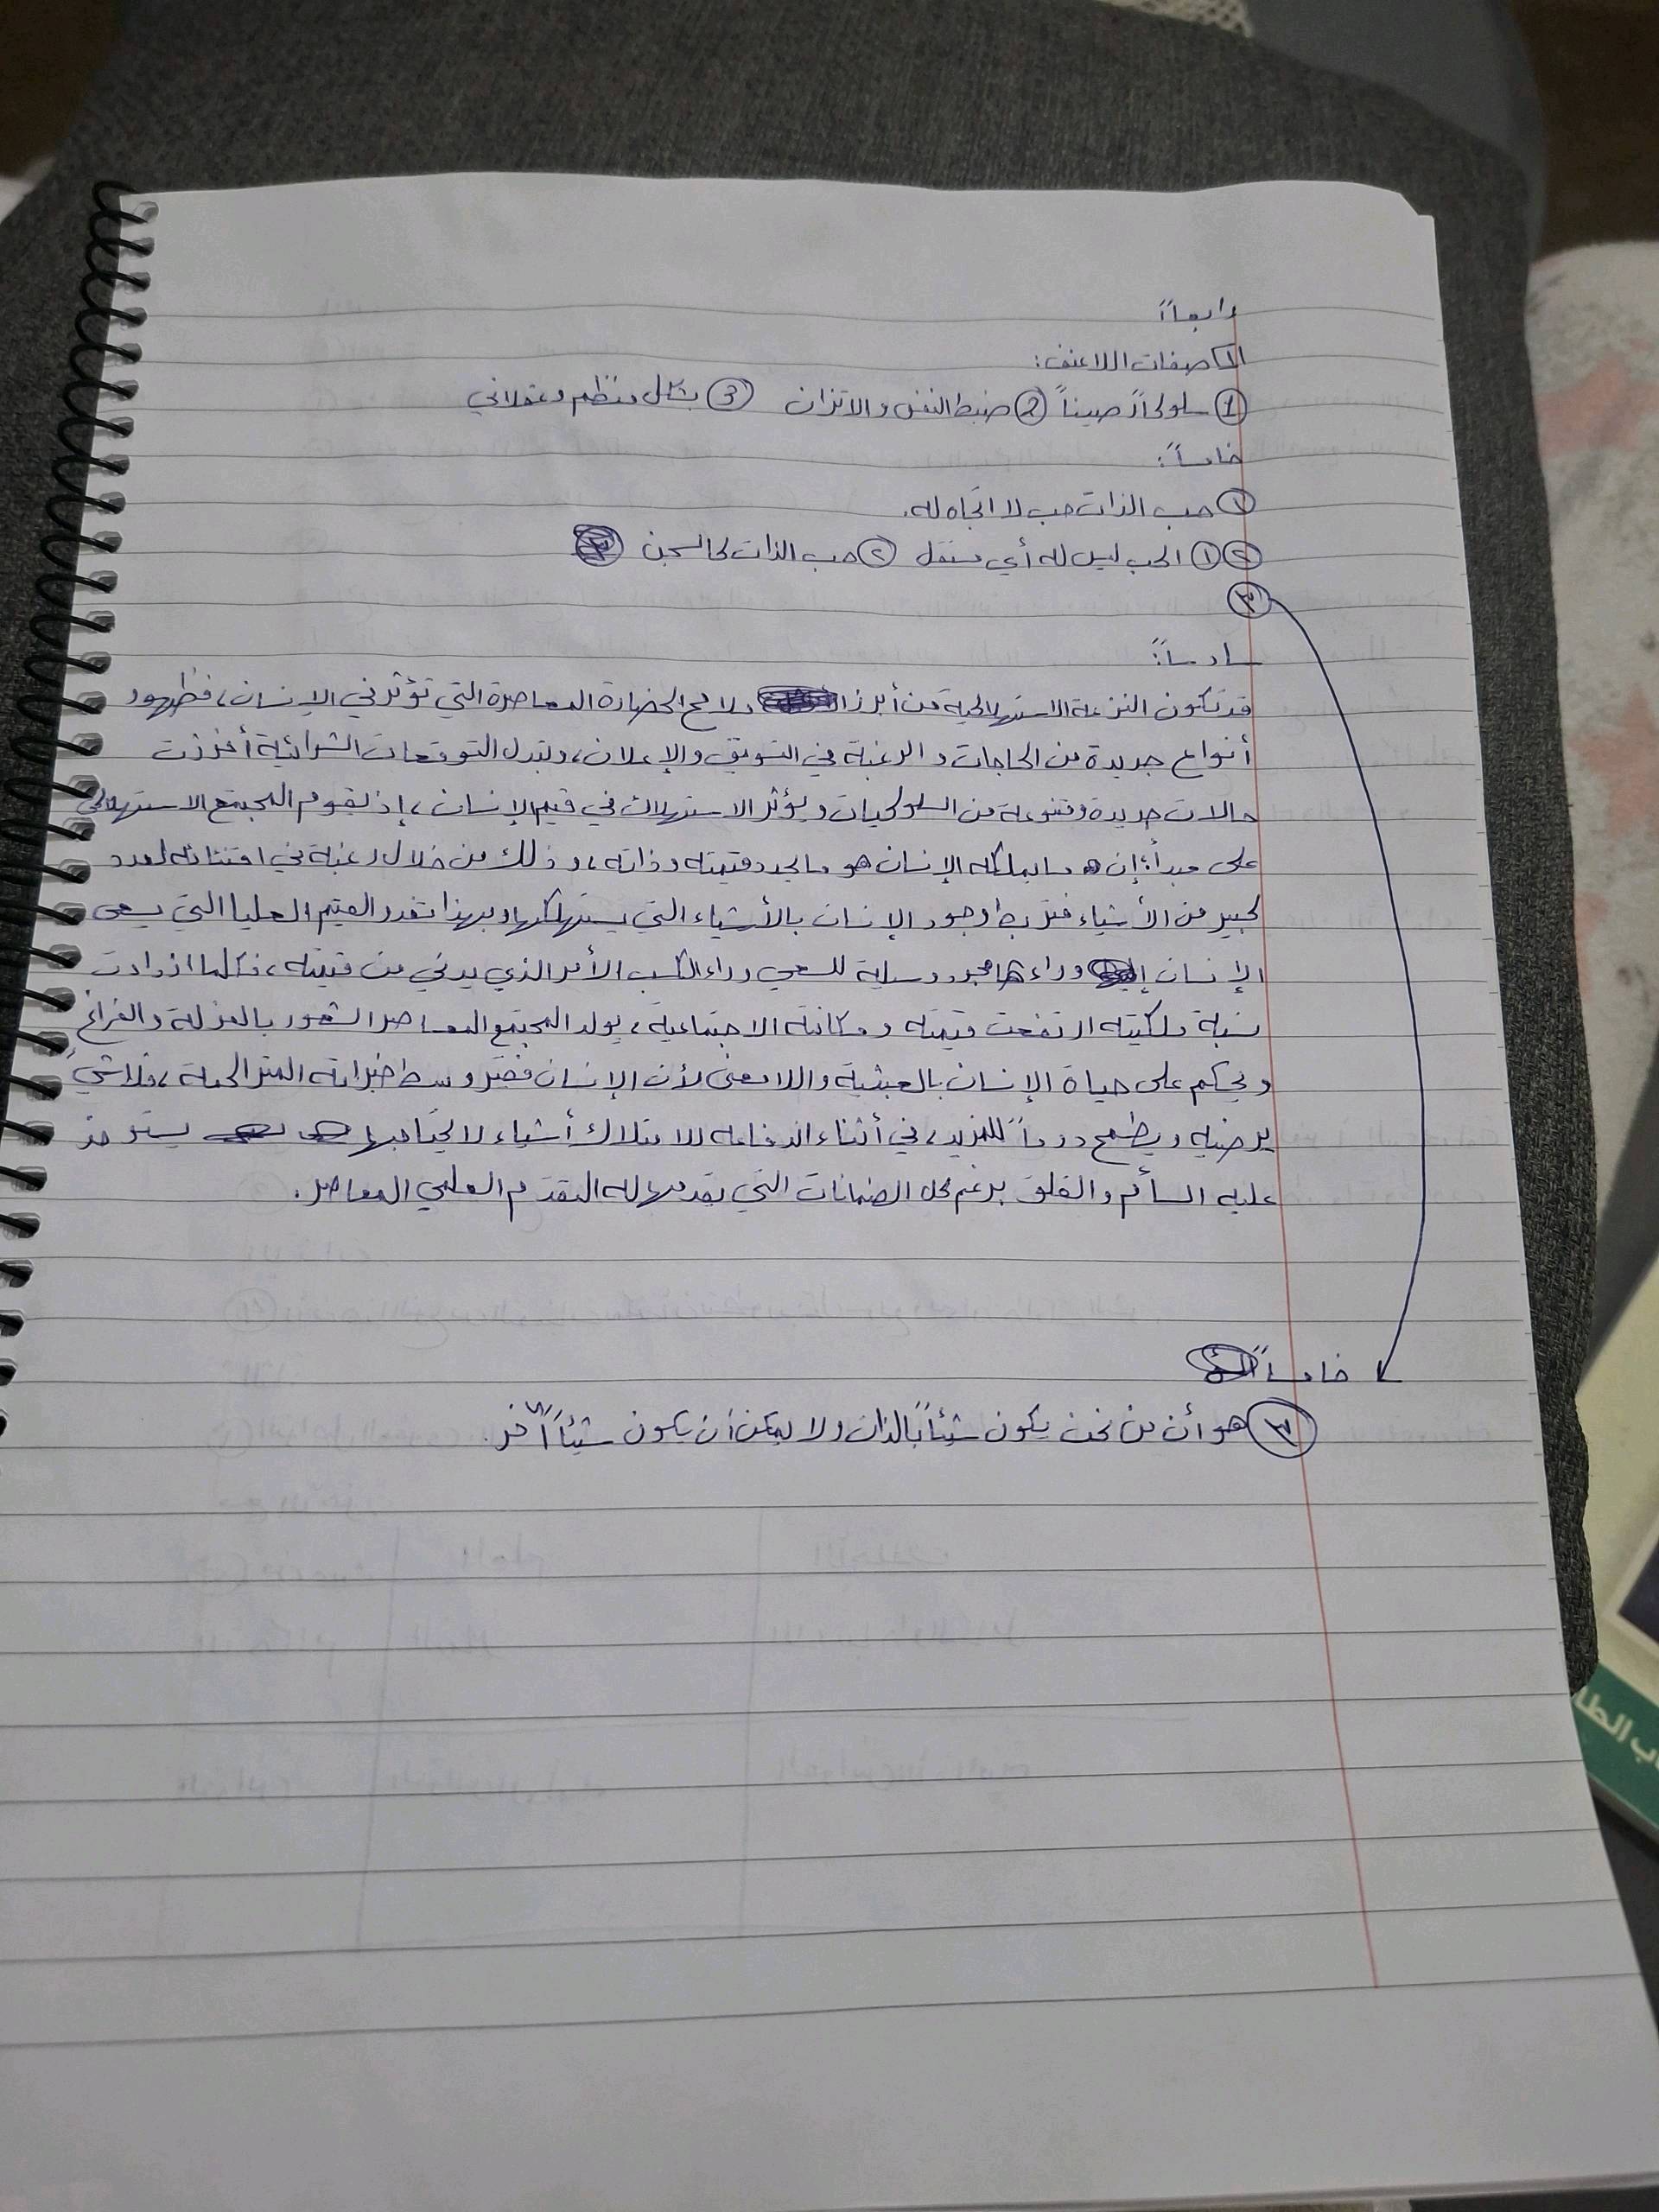 رابعاً
1 صفات اللاعنف:
① سلوكاً رصيناً ② ضبط النفس والاتزان ③ بشكل منظم وعقلاني
خامساً:
① حب الذات حب لا اتجاه له.
② ① الحب ليس له أي مستقل ② حب الذات كالسجن
③
سادساً:
قد تكون النزعة الاستهلاكية من أبرز ملامح الحضارة المعاصرة التي تؤثر في الإنسان، فظهور
أنواع جديدة من الحاجات والرغبة في التسويق والإعلان، وتبدل التوقعات الشرائية أفرزت
حالات جديدة ومتنوعة من السلوكيات ويؤثر الاستهلاك في قيم الإنسان، إذ يقوم المجتمع الاستهلاكي
على مبدأ: إن ما يملكه الإنسان هو ما يحدد قيمته وذاته، وذلك من خلال رغبة في اقتنائه لعدد
كبير من الأشياء فتربط وجود الإنسان بالأشياء التي يستهلكها وبهذا تغدو القيم العليا التي يسعى
الإنسان وراءها مجرد وسيلة للسعي وراء الكسب الأمر الذي يدني من قيمته، فكلما ازدادت
نسبة ملكيته ارتفعت قيمته ومكانته الاجتماعية، يولد المجتمع المعاصر الشعور بالعزلة والفراغ
ويحكم على حياة الإنسان بالعبثية واللامعنى لأن الإنسان فقير وسط خيراته المتراكمة، فلا شيء
يرضيه ويطمح دوماً للمزيد، في أثناء اندفاعه للامتلاك أشياء لا يحتاجها يستوحذ
عليه السأم والقلق برغم كل الضمانات التي يقدمها له التقدم العلمي المعاصر.
خامساً
③ هو أن من نحن يكون شيئاً بالذات ولا يمكن أن يكون شيئاً آخر.
ب الطا